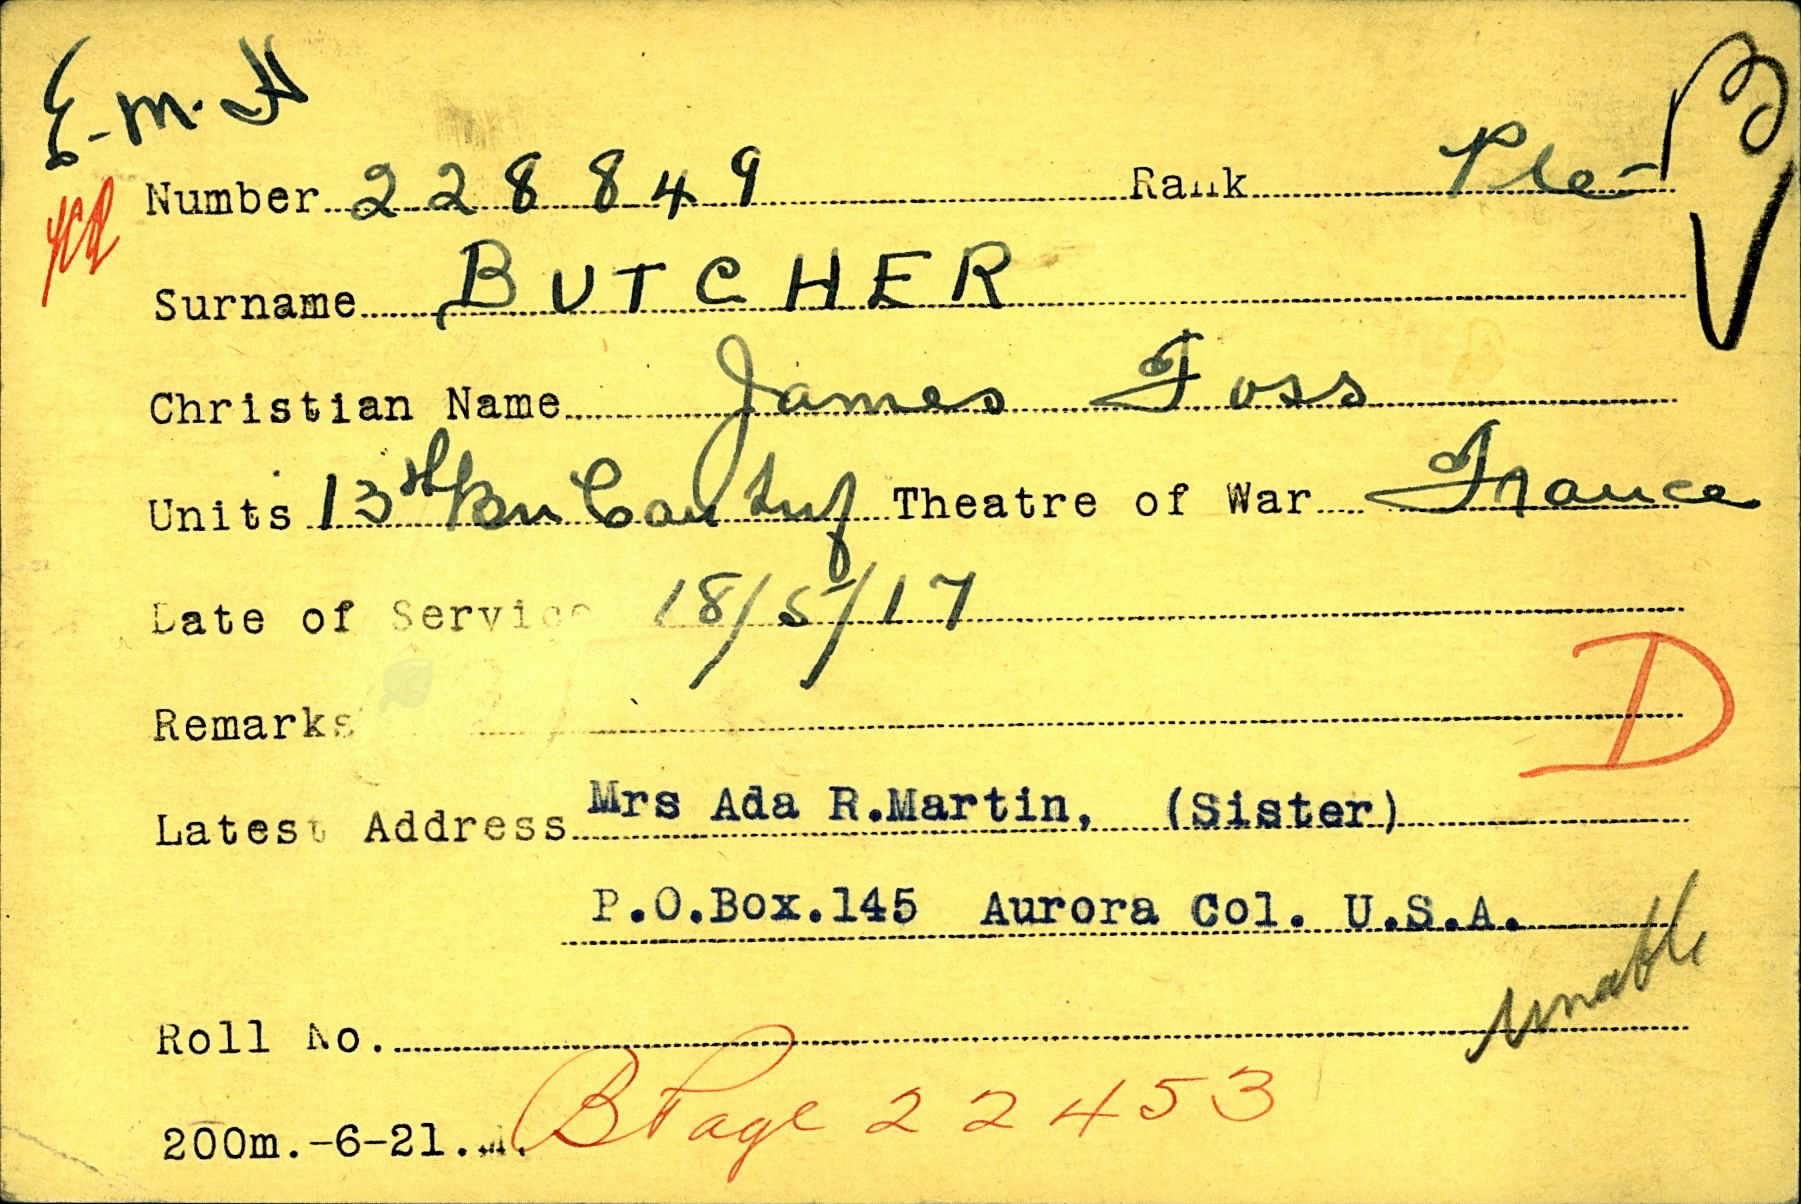 E.M.H
Number 228849 Rank Pte-
B
Surname BUTCHER
Christian Name James Foss
Units 13th Bn Can Inf Theatre of War France
Date of Service 18/5/17
Remarks
D
Latest Address Mrs Ada R.Martin, (Sister)
P.O.Box.145 Aurora Col. U.S.A.
unable
Roll No.
B Page 22453
200m.-6-21.M.